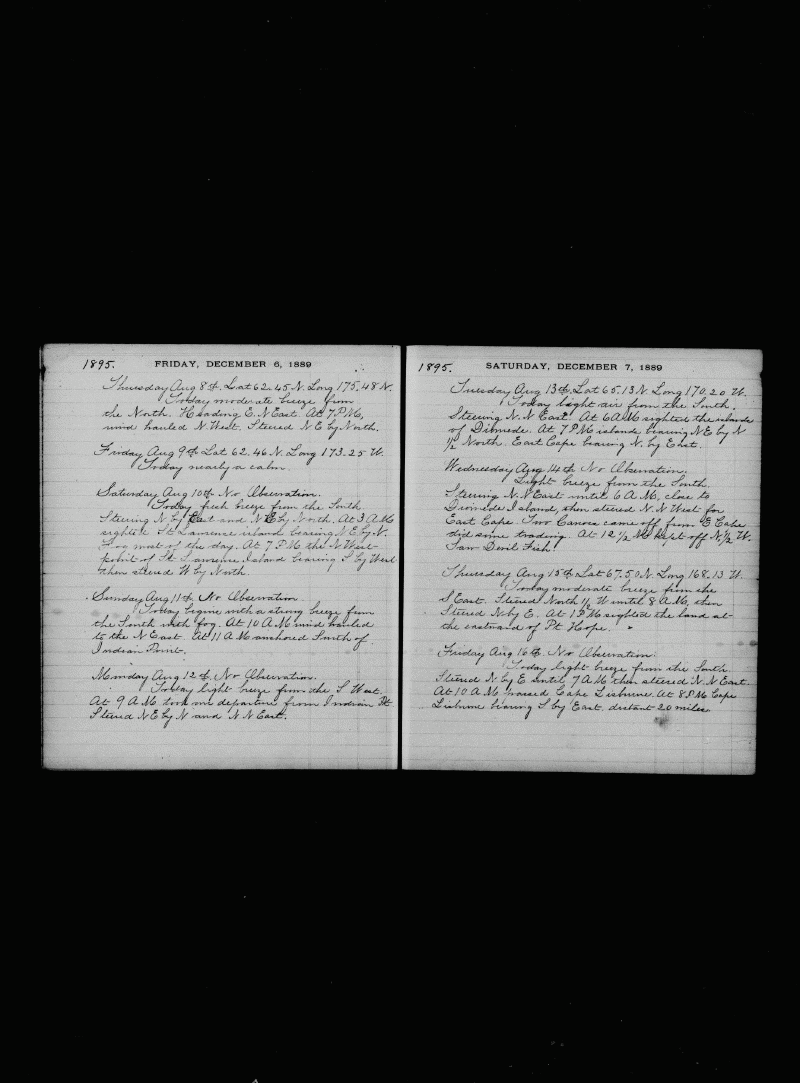 1895. FRIDAY, DECEMBER 6, 1889
Thursday Aug 8th. Lat 62.45 N. Long 175.48 W.
Today moderate breeze from
the North. Heading E. N East. At 7 P.M,
wind hauled N. West. Steered N E by North.
Friday Aug 9th Lat 62.46 N. Long 173.25 W.
Today nearly a calm.
Saturday Aug 10th. No Observation.
Today fresh breeze from the South
Steering N by East and N E by North. At 3 A M
sighted St Lawrense island bearing N E by N.
Fog most of the day. At 7 P.M the N West
point of St Lawrense Island bearing S by West
then steered W by North.
Sunday Aug 11th No Observation
Today begins with a strong breeze from
the South with fog. At 10 A M wind hauled
to the N East. At 11 A M anchored South of
Indian Point.
Monday Aug 12th. No Observation.
Today light breeze from the S West.
At 9 A M took our departure from Indian Pt
Steered N E by N and N N East.
1895. SATURDAY, DECEMBER 7, 1889
Tuesday Aug 13th. Lat 65.13 N. Long 170.20 W.
Today light air from the South.
Steering N. N East. At 6 A M sighted the islands
of Diomede. At 7 P M islands bearing N E by N
1/2 North. East Cape bearing N. by East.
Wednesday Aug 14th No Observation.
Light breeze from the South
Steering N. N East until 6 A M, close to
Diomede Island, then steered N. N West for
East Cape. Two Canoes came off from E Cape
did some trading. At 12 1/2 kept off N 1/2 W.
Saw Devil Fish.
Thursday Aug 15th Lat 67.50 N. Long 168.13 W.
Today moderate breeze from the
S East. Steered North 1/2 W until 8 A M, then
Steered N by E. At 1 P M sighted the land at
the eastward of Pt Hope.
Friday Aug 16th. No Observation.
Today light breeze from the South
Steered N. by E until 7 A M then steered N. N East.
At 10 A M passed Cape Lisburne. At 8 P M Cape
Lisburne bearing S by East. distant 20 miles.